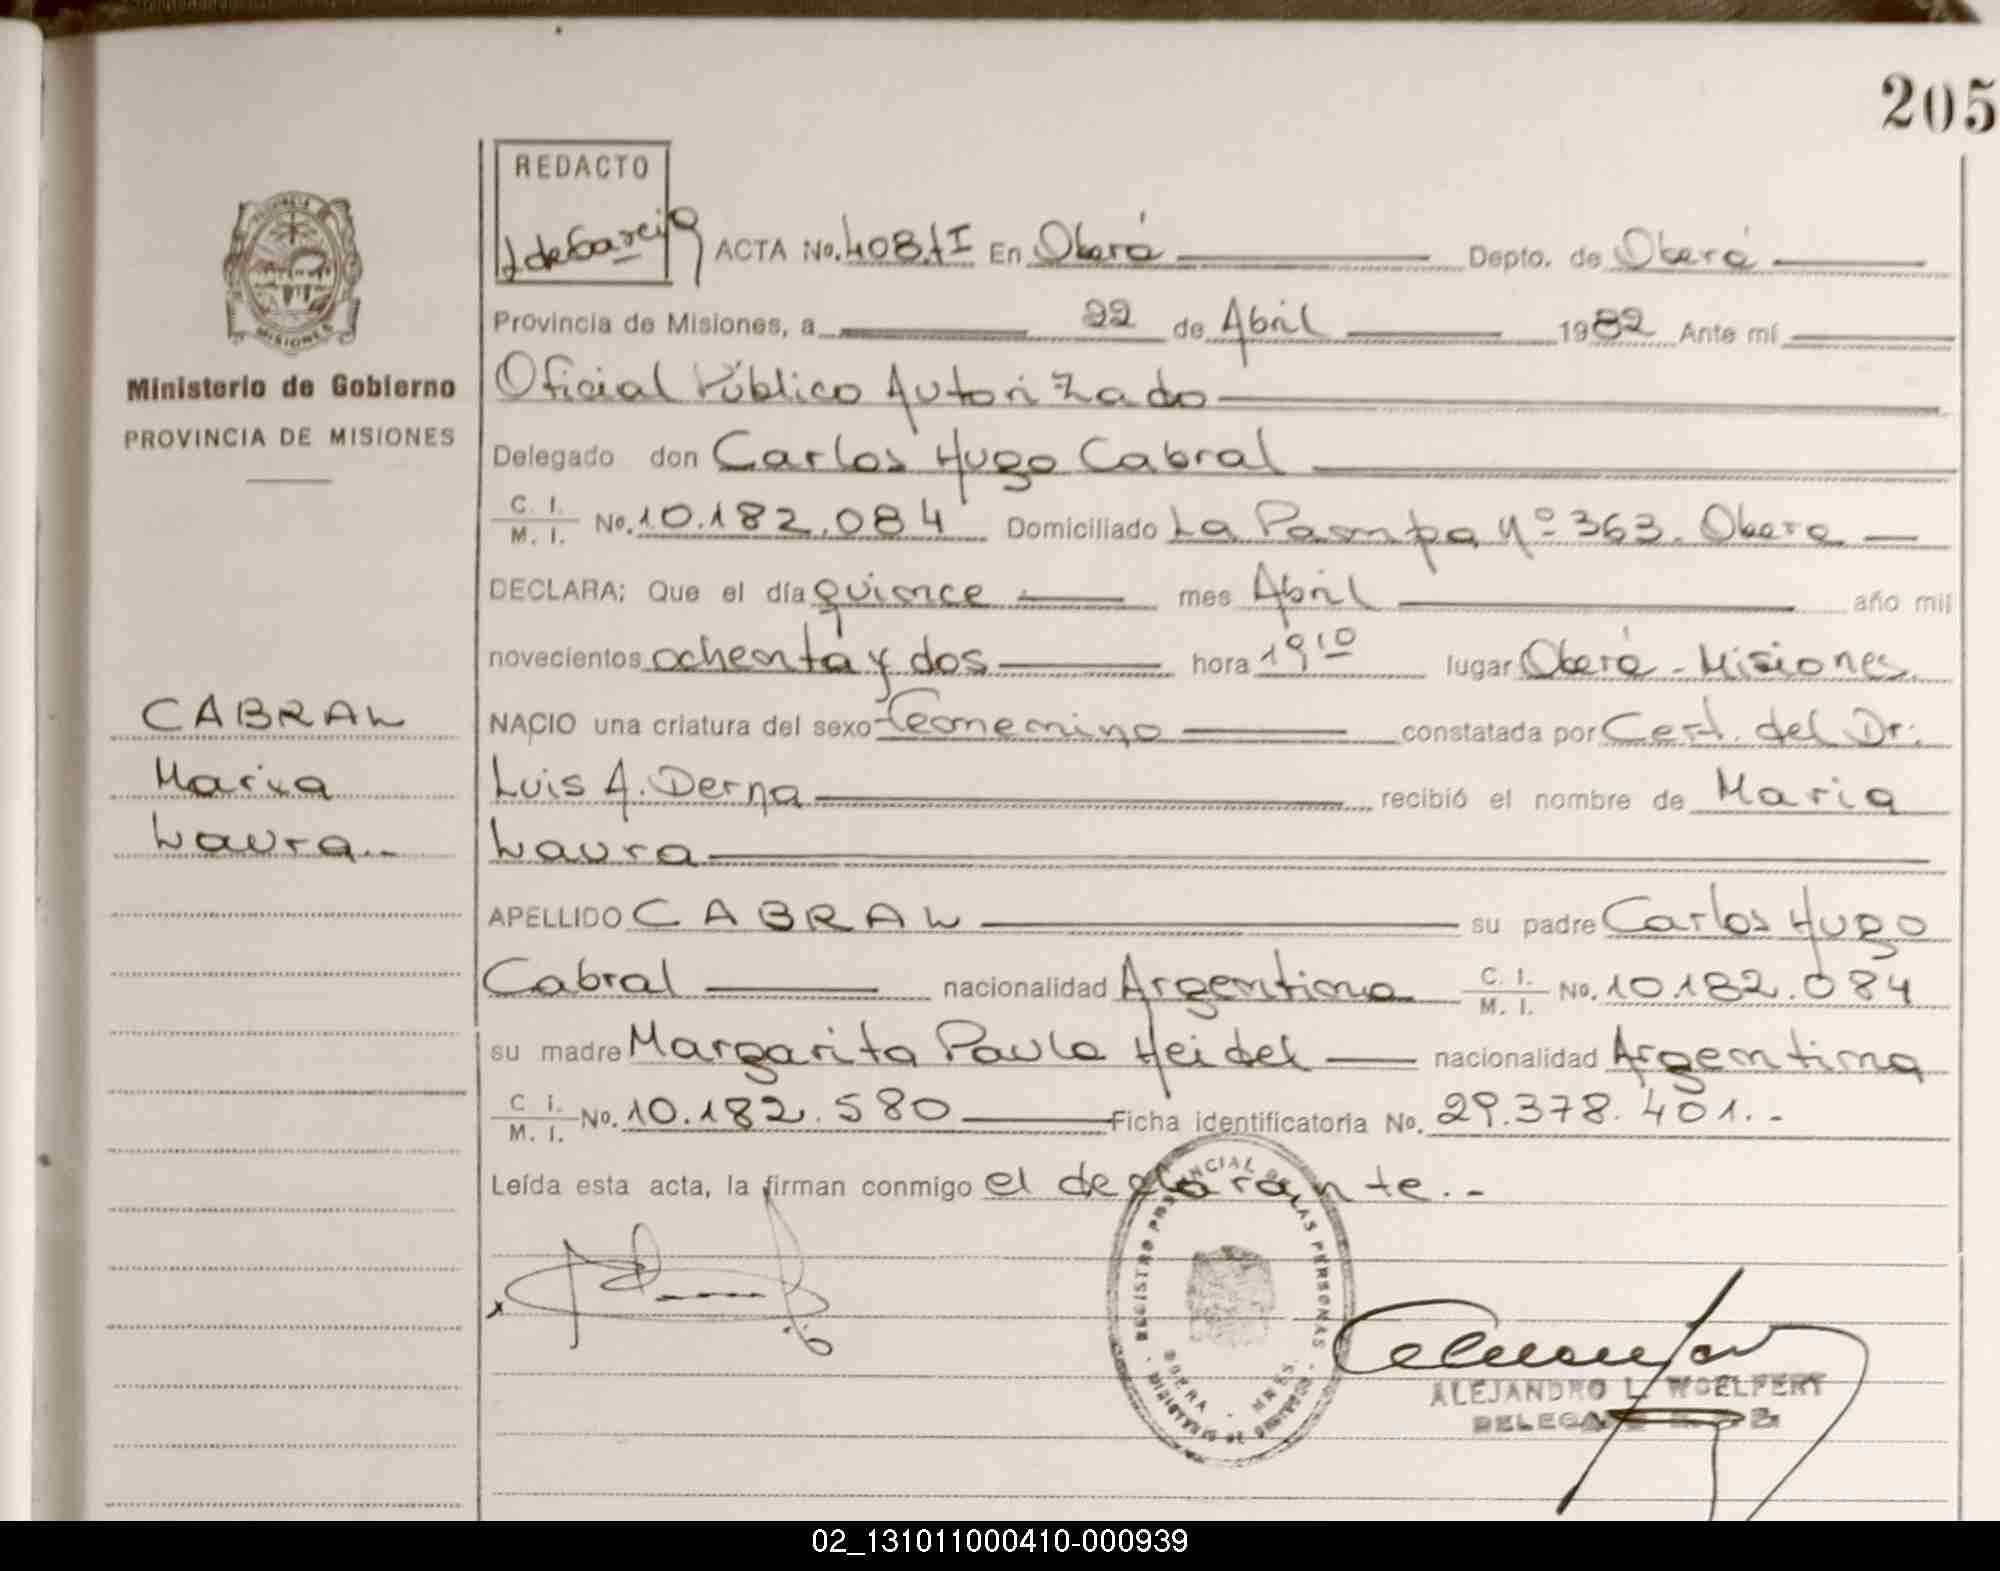 205
REDACTO
J de Garcia ACTA No. 408.tI En Oberá Depto. de Oberá
Provincia de Misiones, a 22 de Abril 1982 Ante mí
Ministerio de Gobierno
PROVINCIA DE MISIONES
Oficial Público Autorizado
Delegado don Carlos Hugo Cabral
C. I. / M. I. No. 10.182.084 Domiciliado La Pampa Nº 363. Obera
DECLARA; Que el día quince mes Abril año mil
novecientos ochenta y dos hora 19 10 lugar Oberá - Misiones.
CABRAL
Maria
Laura..
NACIO una criatura del sexo femenino constatada por Cert. del Dr.
Luis A. Derna recibió el nombre de Maria
Laura
APELLIDO CABRAL su padre Carlos Hugo
Cabral nacionalidad Argentina C. I. / M. I. No. 10.182.084
su madre Margarita Paula Heidel nacionalidad Argentina
C. I. / M. I. No. 10.182.580 Ficha identificatoria No. 29.378.401.-
Leída esta acta, la firman conmigo el declarante.-
REGISTRO PROVINCIAL DE LAS PERSONAS
OBERA - MNES.
ALEJANDRO L. WOELFERT
02_131011000410-000939